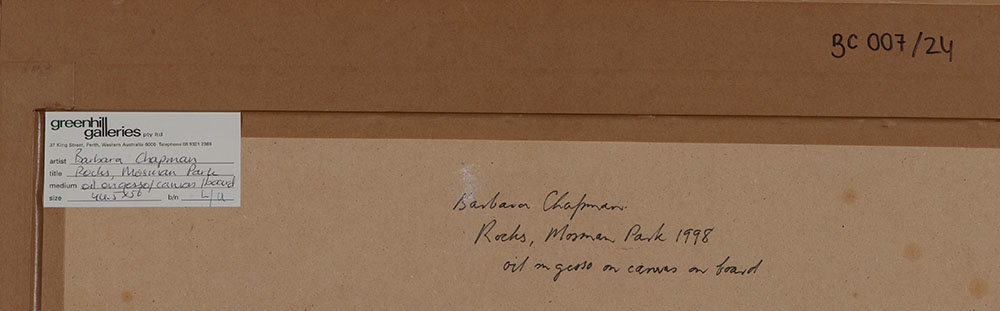 BC 007/24
greenhill
galleries pty ltd
37 King Street, Perth, Western Australia 6000 Telephone 09 321 2369
artist Barbara Chapman
title Rocks, Mosman Park
medium oil on gesso/canvas/board
size 44.5x56 b/n L/U
Barbara Chapman.
Rocks, Mosman Park 1998
oil on gesso on canvas on board